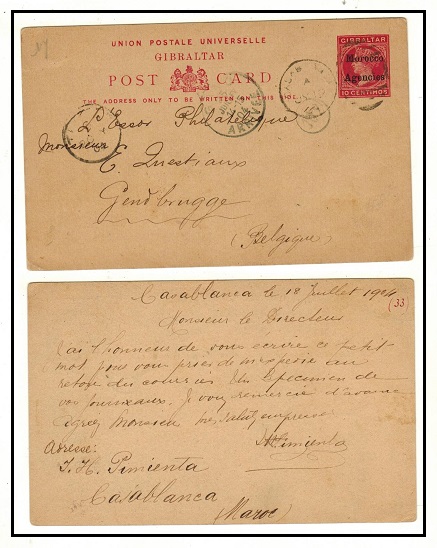 UNION POSTALE UNIVERSELLE
GIBRALTAR
POST CARD
THE ADDRESS ONLY TO BE WRITTEN ON THIS SIDE
GIBRALTAR
Morocco
Agencies
10 CENTIMOS
ARRIVÉE
L'Essor Philatélique
Monsieur
E. Questiaux
Gendbrugge
(Belgique)
Casablanca le 18 Juillet 1904
(33)
Monsieur le Directeur
J'ai l'honneur de vous écrire ce petit
mot pour vous prier de au
retour du courrier Un Specimen de
vos journeaux. Je vous remercie d'avance
Agréez Monsieur mes salut empressé
Pimienta
Adresse:
J. H. Pimienta
Casablanca
(Maroc)